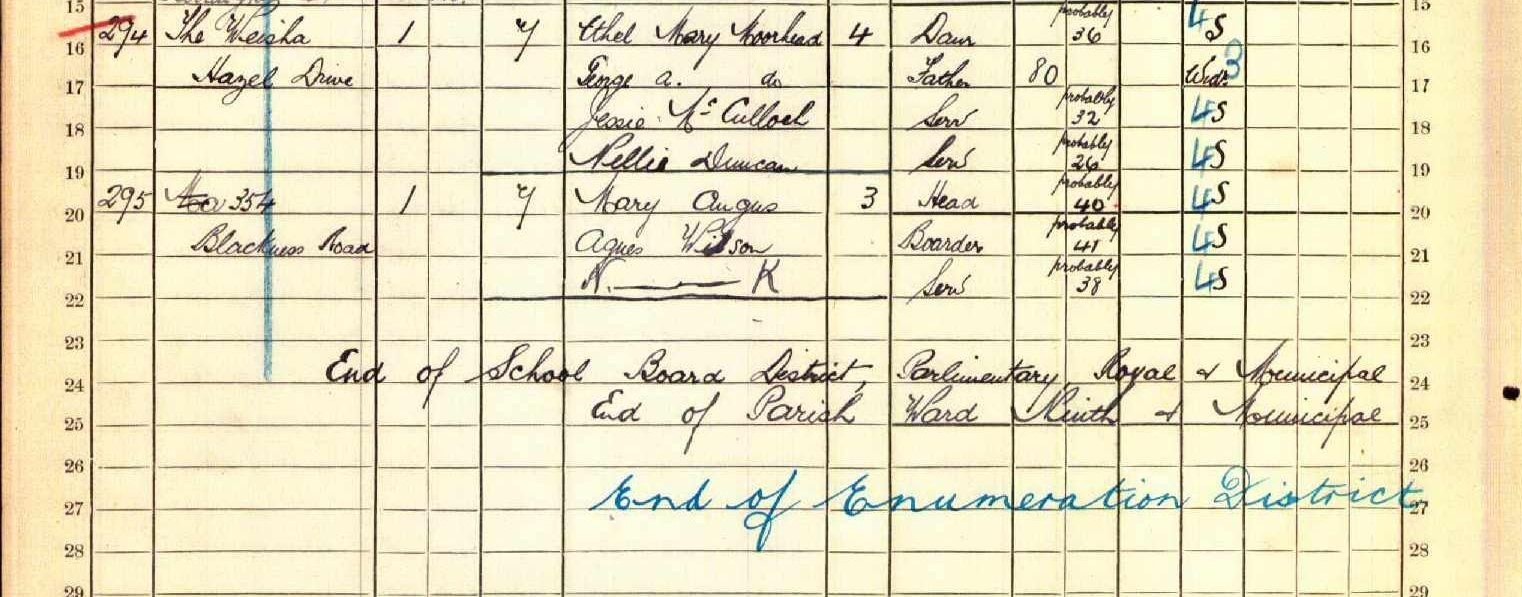 15 15
294 The Weisha 1 7 Ethel Mary Moorhead 4 Daur probably 36 4 S
16 16
Hazel Drive George A. do Father 80 Widr 3
17 17
Jessie McCulloch Serv probably 32 4 S
18 18
Nellie Duncan Serv probably 26 4 S
19 19
295 354 1 7 Mary Angus 3 Head probably 40 4 S
20 20
Blackness Road Agnes Wilson Boarder probably 41 4 S
21 21
N. K Serv probably 38 4 S
22 22
23 23
End of School Board District, Parlimentary, Royal & Municipal
24 24
End of Parish Ward Ninth & Municipal
25 25
26 26
End of Enumeration District
27 27
28 28
29 29